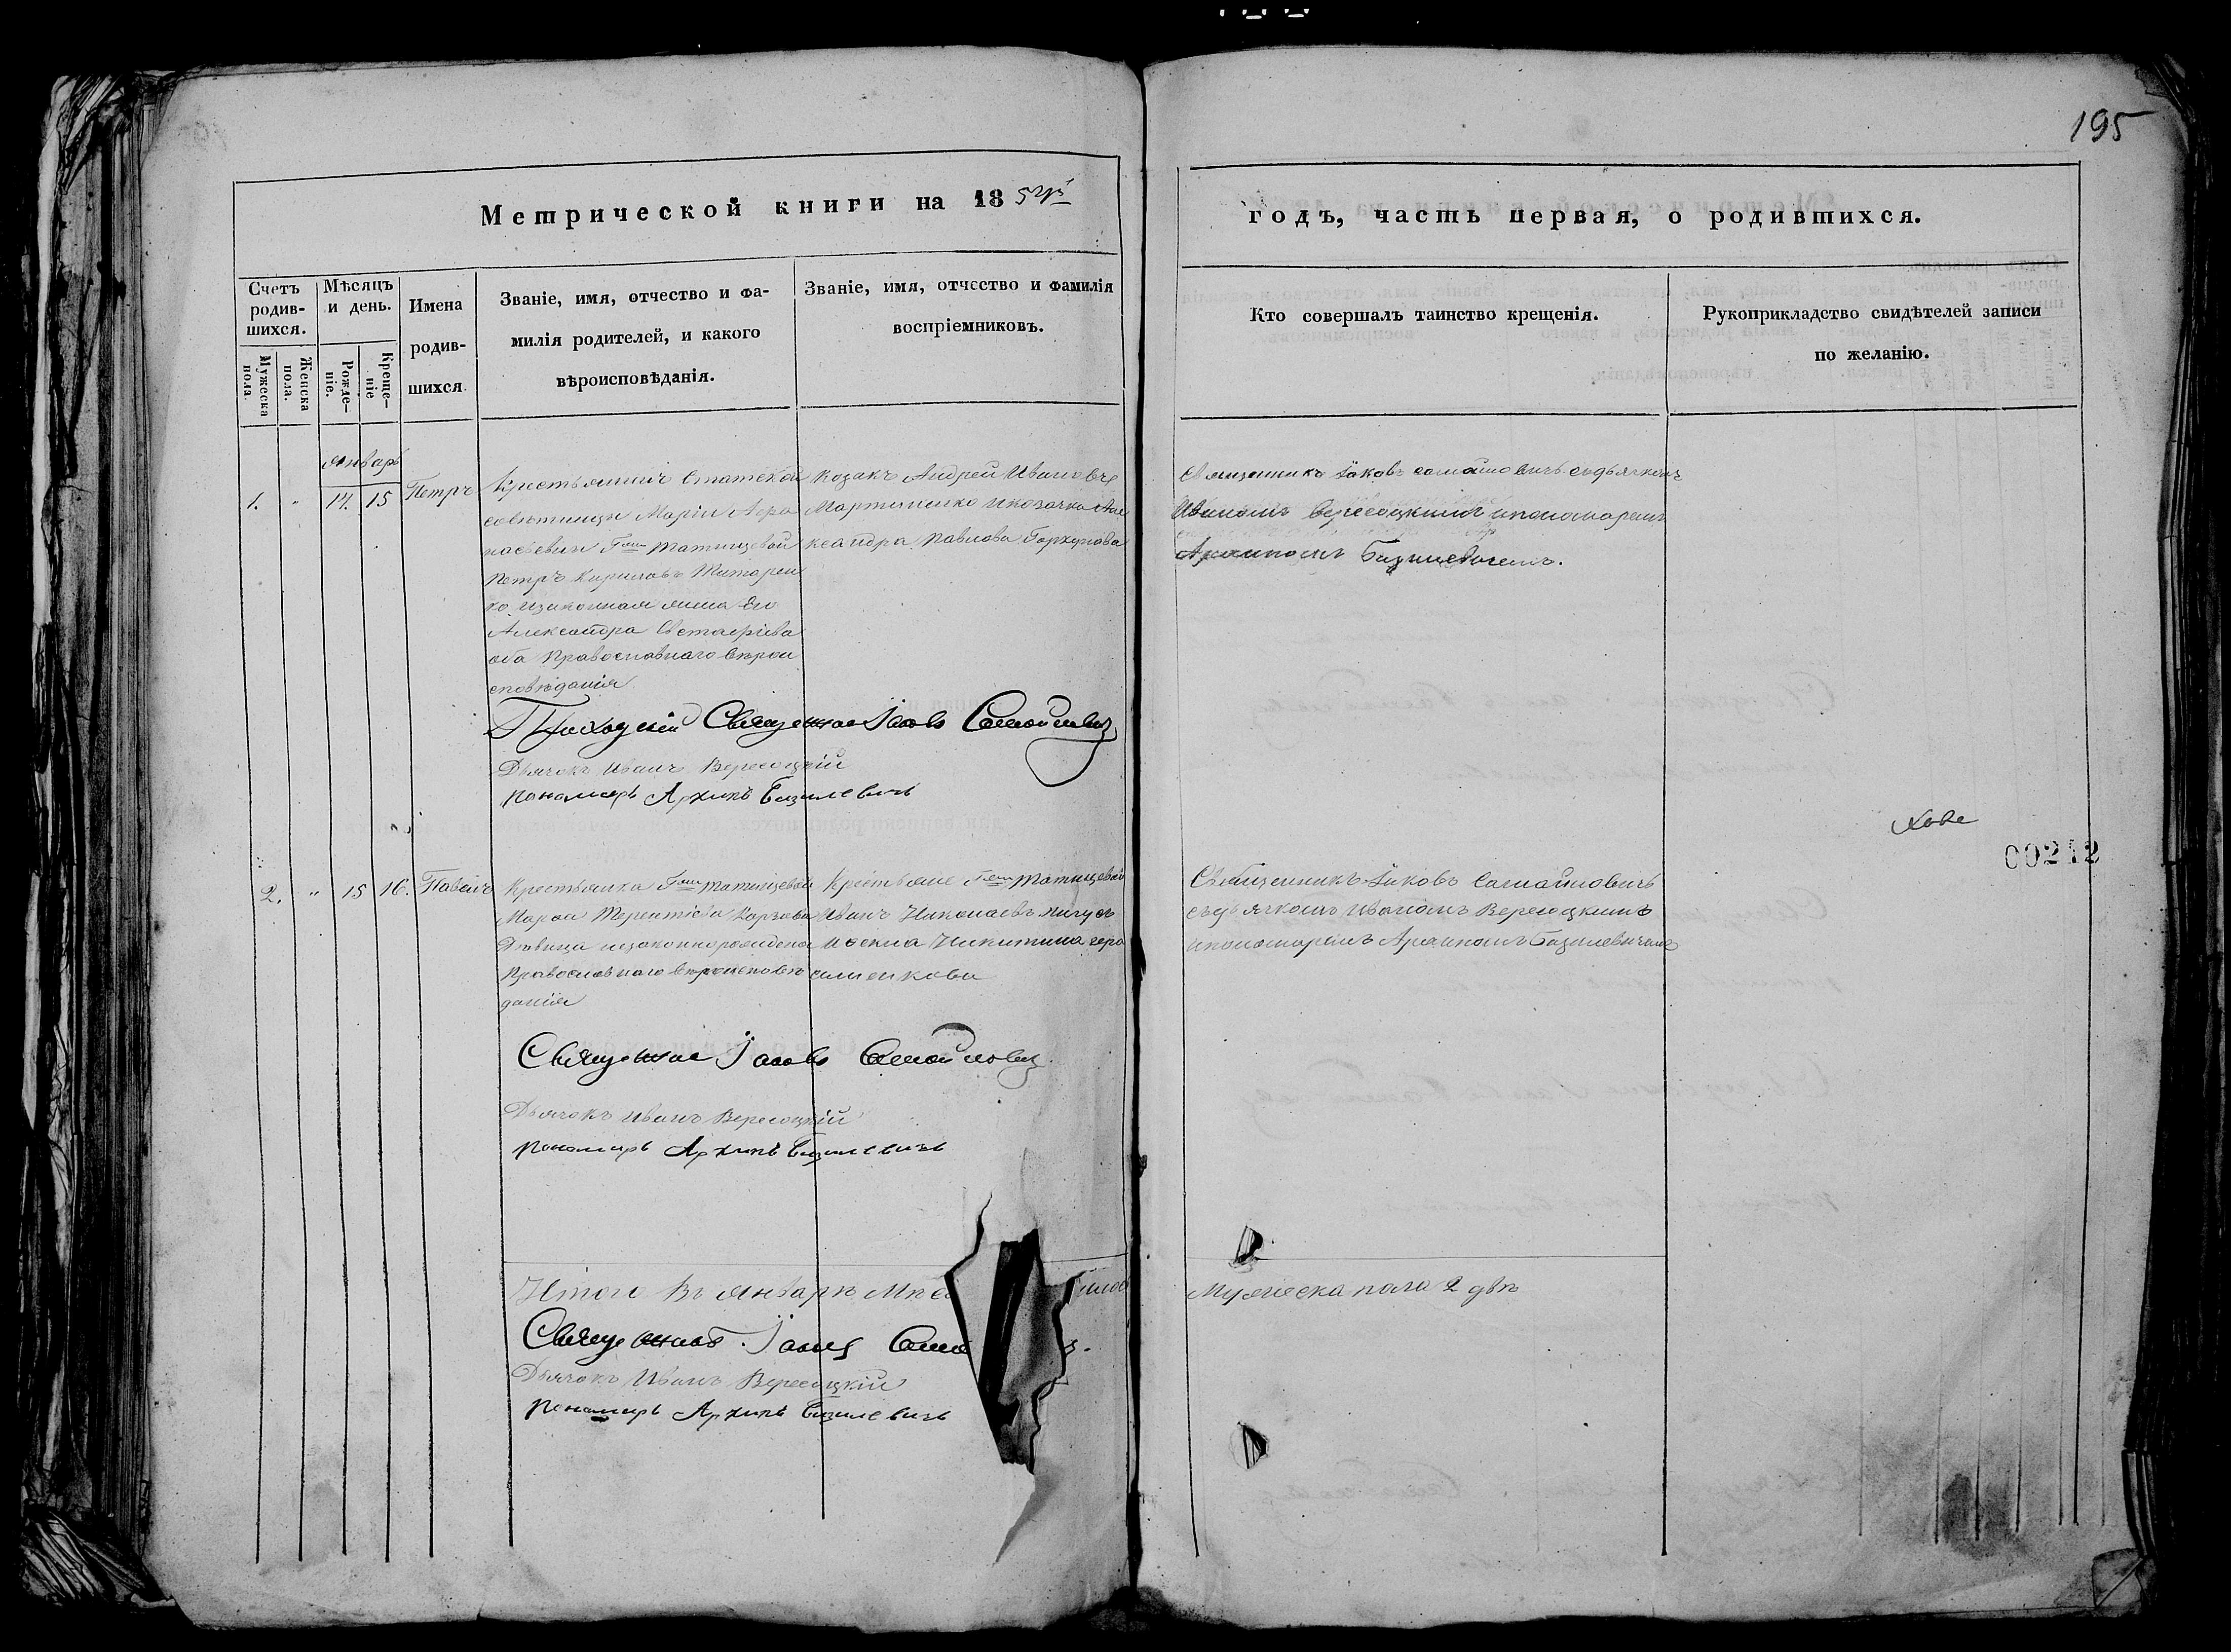 195
Метрической книги на 18
годъ, часть первая, о родившихся.
Счетъ родив-шихся.
Мужеска пола.
Женска пола.
Мѣсяцъ и день.
Рожде-ніе.
Креще-ніе
Имена родив-шихся.
Званіе, имя, отчество и фа-
милія родителей, и какого
вѣроисповѣданія.
Званіе, имя, отчество и фамилія
воспріемниковъ.
Кто совершалъ таинство крещенія.
Рукоприкладство свидѣтелей записи
по желанію.
Январь
1. " 14. 15 Петръ
Крестьянинъ Статской
совѣтницы Маріи Афа
насьевны Татищевой
Петръ Кириловъ
законная жена его
Александра
оба Православнаго вѣрои
сповѣданія
Козакъ Андрей Ивановъ
Мартиненко и козачка Але
ксандра Павлова
Священникъ Іаковъ Самойловичъ съ дьячкомъ
Иваномъ Вересоцкимъ и пономаремъ
Архипомъ Базилевичемъ.
Приходскій Священникъ Іаковъ Самойловичъ
Дьячокъ Иванъ Вересоцкій
Пономарь Архипъ Базилевичъ
00212
2. " 15 16. Павелъ
Крестьянка Татищевой
Марфа Терентіева
Дѣвица незаконнорожденъ
Православнаго вѣроисповѣ
данія
Крестьяне Татищевой
Иванъ Николаевъ
Никитина гера
сименкова
Священникъ Іаковъ Самойловичъ
съ дьячкомъ Иваномъ Вересоцкимъ
и пономаремъ Архипомъ Базилевичемъ
Священникъ Іаковъ Самойловичъ
Дьячокъ Иванъ Вересоцкій
Пономарь Архипъ Базилевичъ
Итого въ Январѣ
Мужеска пола 2 двѣ
Священникъ Іаковъ
Дьячокъ Иванъ Вересоцкій
Пономарь Архипъ Базилевичъ